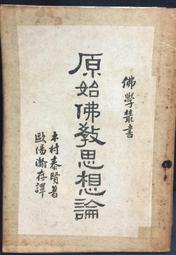 佛學叢書
原始佛教思想論
木村泰賢著
歐陽瀚存譯